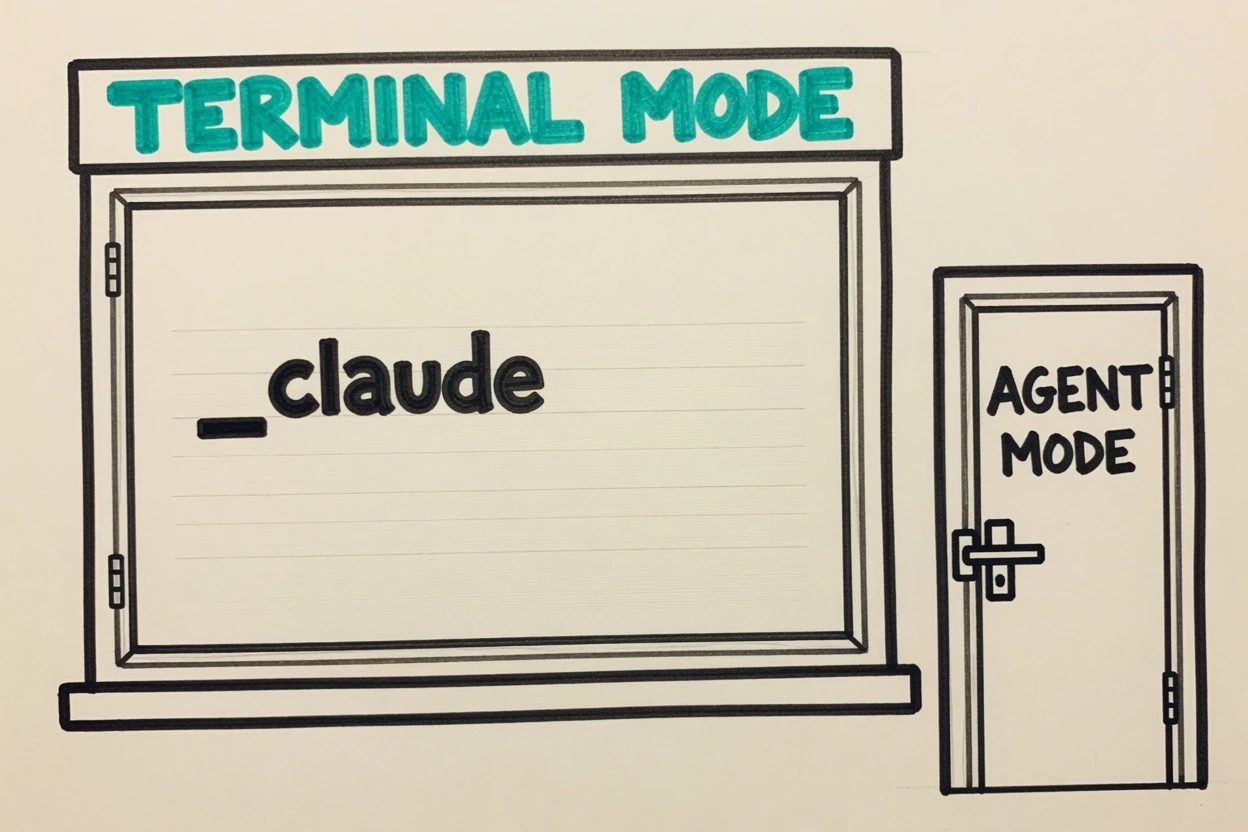 TERMINAL MODE
_claude
AGENT
MODE